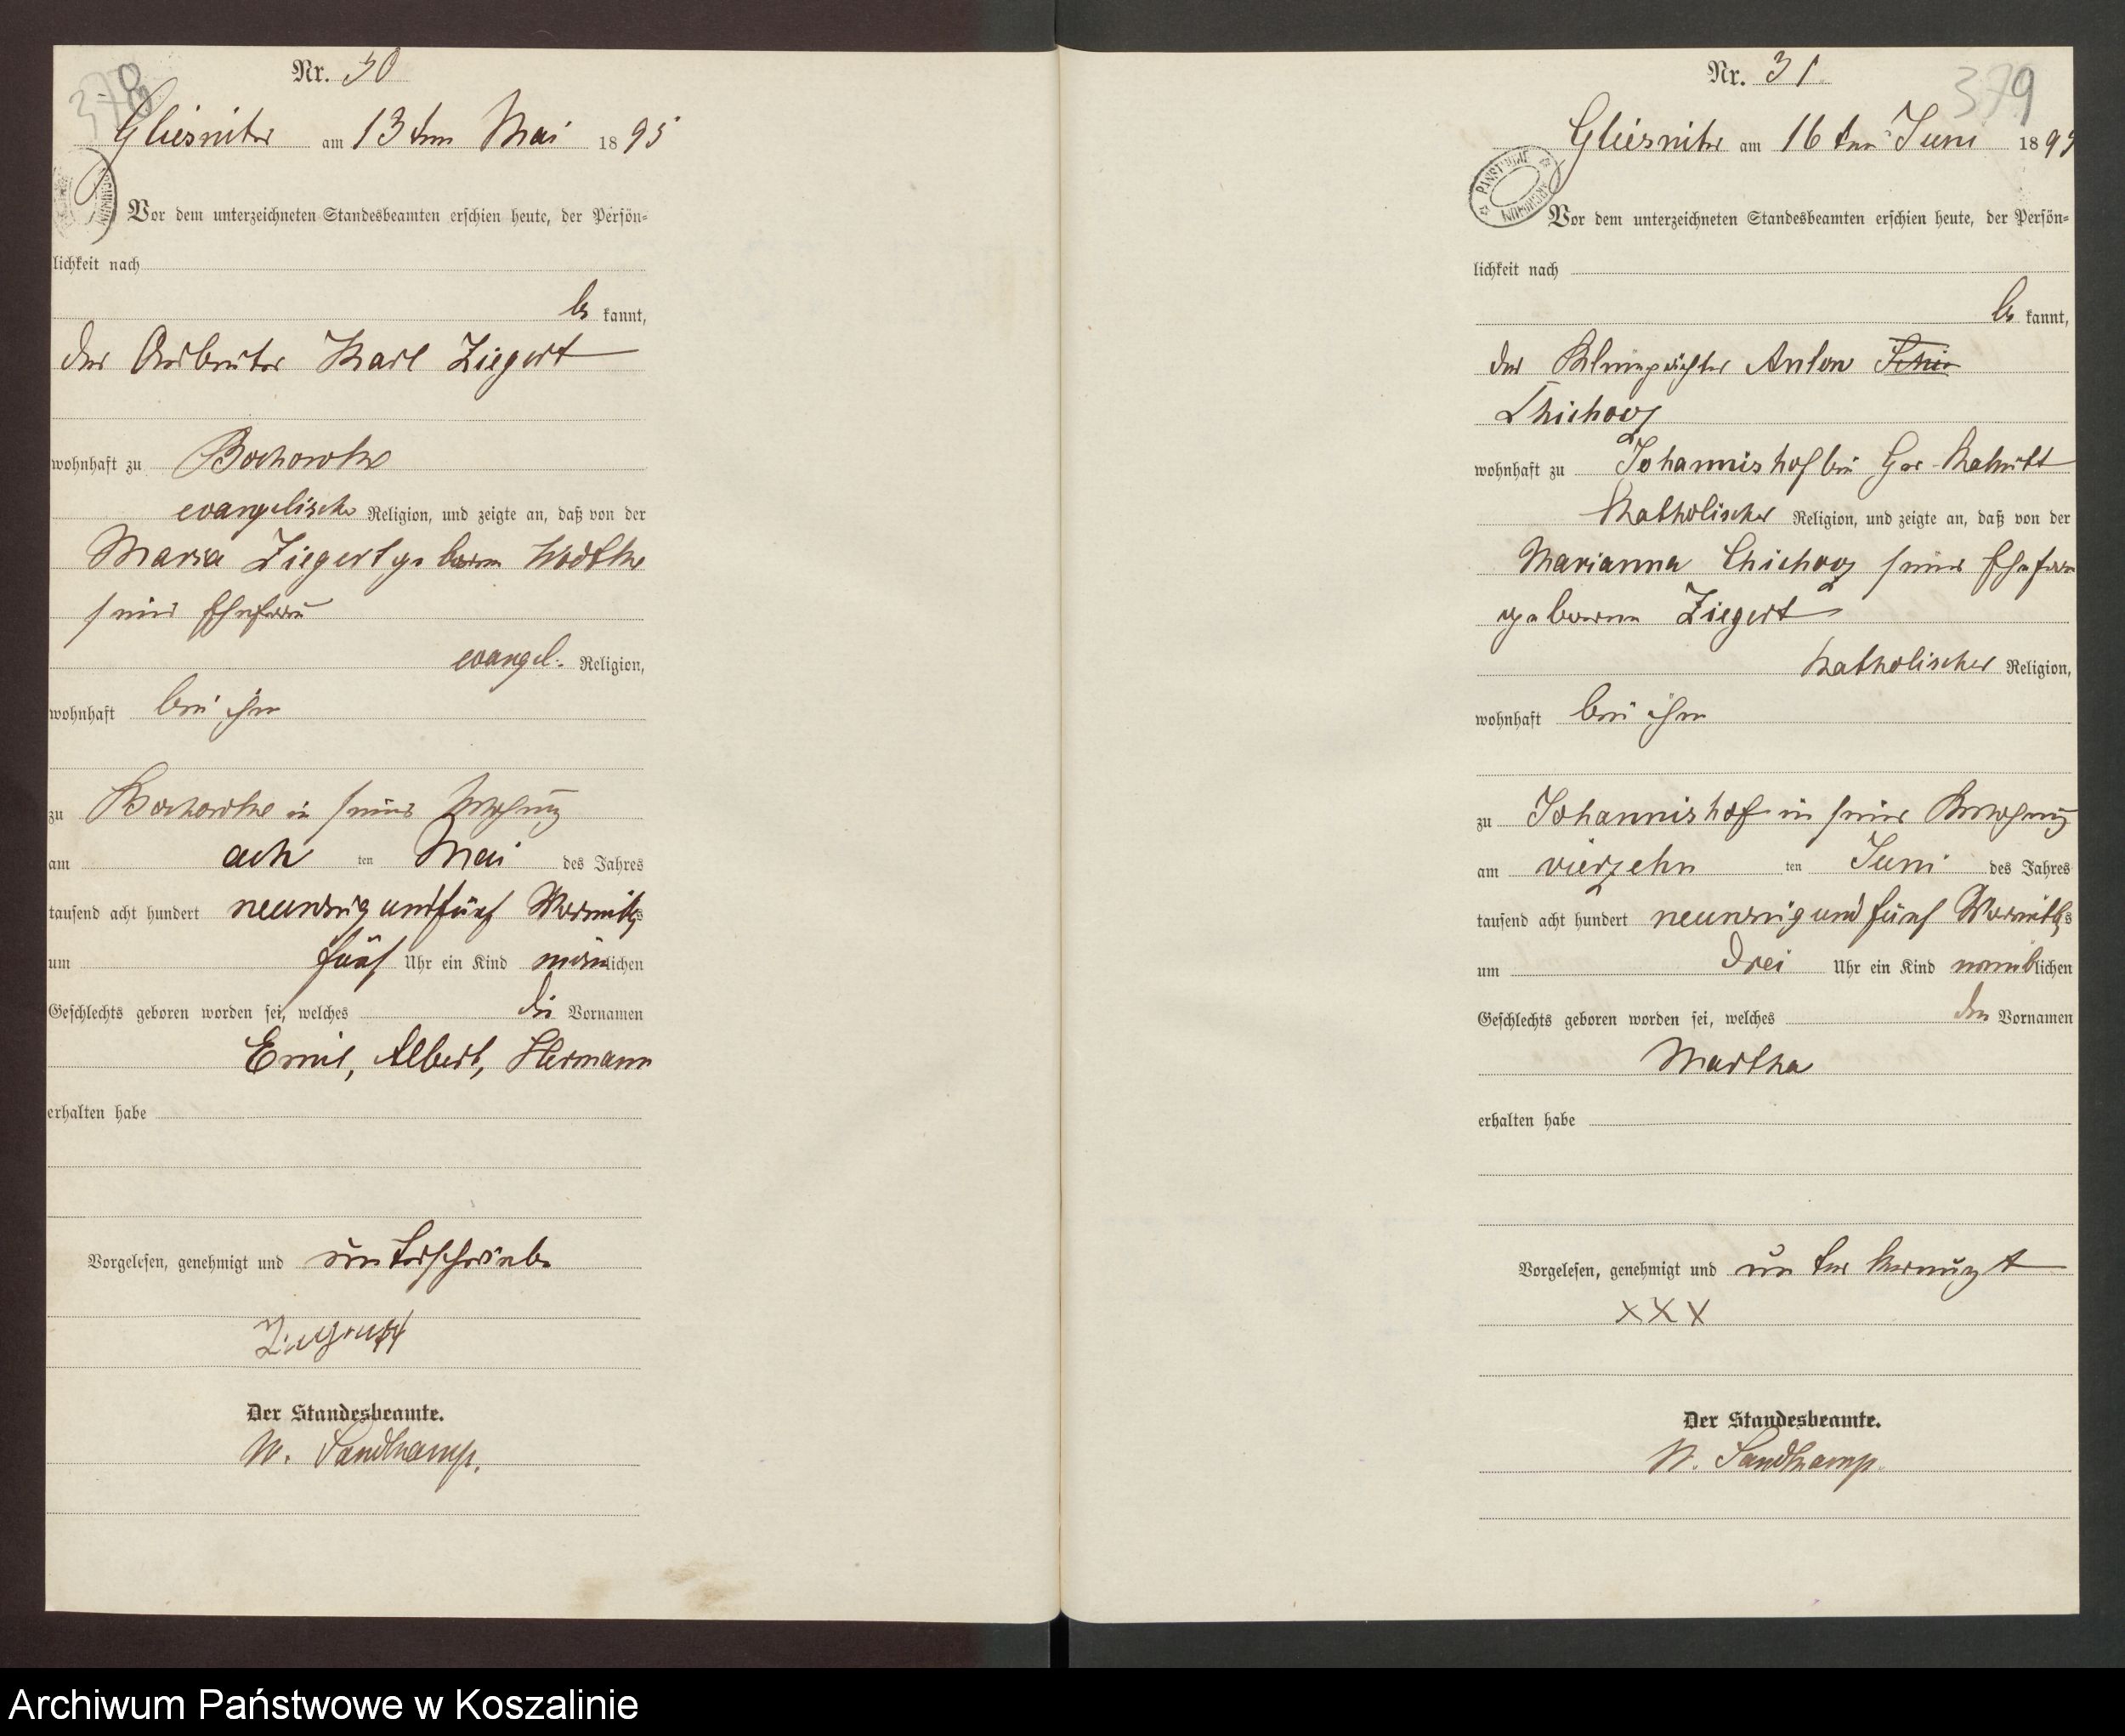 378
Nr. 30
Gliesnitz am 13ten Mai 1895
Vor dem unterzeichneten Standesbeamten erschien heute, der Persön=
lichkeit nach
be kannt,
der Arbeiter Karl Ziegert
wohnhaft zu Bochowke
evangelischer Religion, und zeigte an, daß von der
Maria Ziegert geborene Wodtke
seiner Ehefrau
evangel. Religion,
wohnhaft bei ihm
zu Bochowke in seiner Wohnung
am ach ten Mai des Jahres
tausend acht hundert neunzig und fünf Vormittags
um fünf Uhr ein Kind männlichen
Geschlechts geboren worden sei, welches die Vornamen
Emil, Albert, Hermann
erhalten habe
Vorgelesen, genehmigt und unterschrieben
Der Standesbeamte.
W. Sandkamp.
379
Nr. 31
Gliesnitz am 16ten Juni 1895
Vor dem unterzeichneten Standesbeamten erschien heute, der Persön=
lichkeit nach
be kannt,
der Anton
wohnhaft zu Johannishof bei
Katholischer Religion, und zeigte an, daß von der
Marianna seiner Ehefrau
geborene Ziegert
Katholischer Religion,
wohnhaft bei ihm
zu Johannishof in seiner
am vierzehn ten Juni des Jahres
tausend acht hundert neunzig und fünf Vormittags
um drei Uhr ein Kind weiblichen
Geschlechts geboren worden sei, welches den Vornamen
Martha
erhalten habe
Vorgelesen, genehmigt und unterkreuzt
XXX
Der Standesbeamte.
W. Sandkamp.
Archiwum Państwowe w Koszalinie